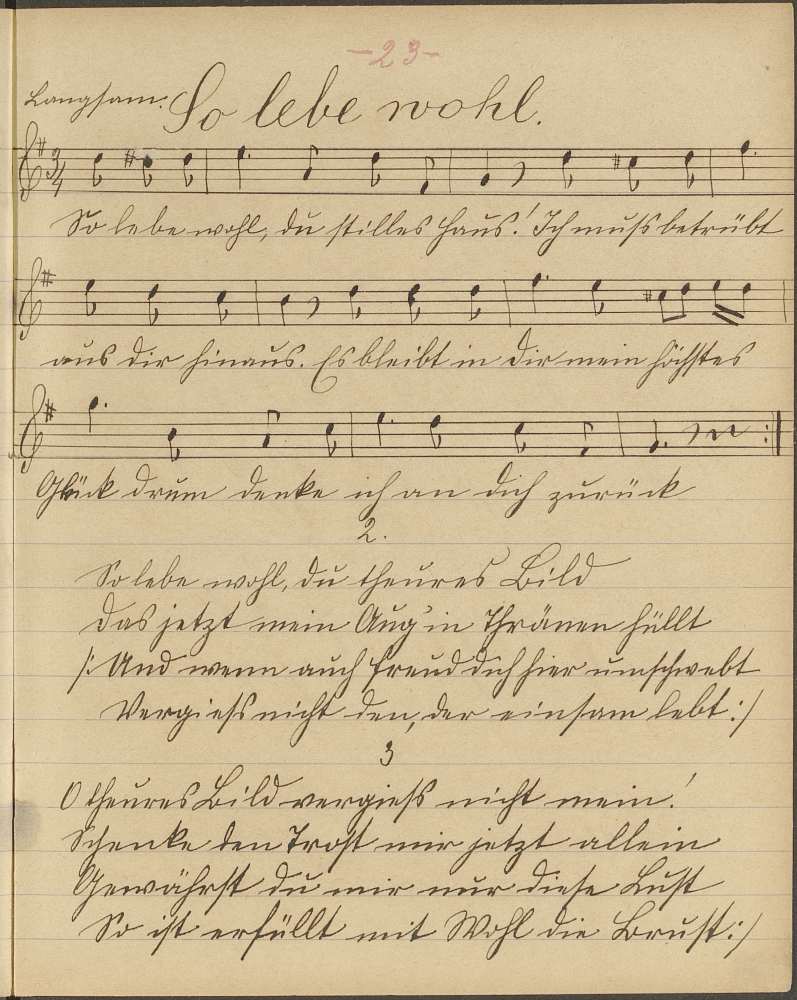 -23-
Langsam. So lebe wohl.
So lebe wohl, du stilles Haus! Ich muß betrübt
aus dir hinaus. Es bleibt in dir mein höchstes
Glück drum denke ich an dich zurück
2.
So lebe wohl, du theures Bild
das jetzt mein Aug' in Thränen hüllt
/: Und wenn auch Freud dich hier umschwebt
Vergieß nicht den, der einsam lebt :/
3
O theures Bild vergieß nicht mein!
Schenke den Trost mir jetzt allein
Gewährst du mir nur diese Lust
So ist erfüllt mit Wohl die Brust :/